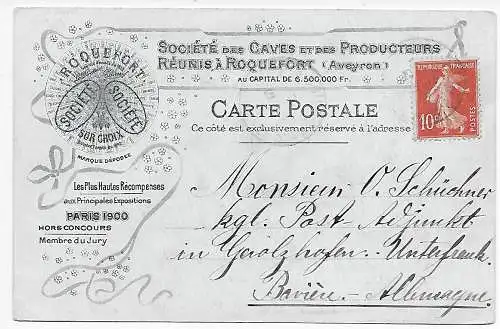 ROQUEFORT
SOCIÉTÉ SOCIÉTÉ
SUR CHOIX
MARQUE DÉPOSÉE
Les Plus Hautes Récompenses
aux Principales Expositions
PARIS 1900
HORS CONCOURS
Membre du Jury
SOCIÉTÉ DES CAVES ET DES PRODUCTEURS
RÉUNIS À ROQUEFORT (Aveyron)
AU CAPITAL DE 6.500.000 Fr.
CARTE POSTALE
Ce côté est exclusivement réservé à l'adresse
REPUBLIQUE FRANÇAISE
10c
POSTES
Monsieur O. Schüchner
kgl. Post Adjunkt
in Gerolzhofen - Unterfrank.
Bavière - Allemagne.